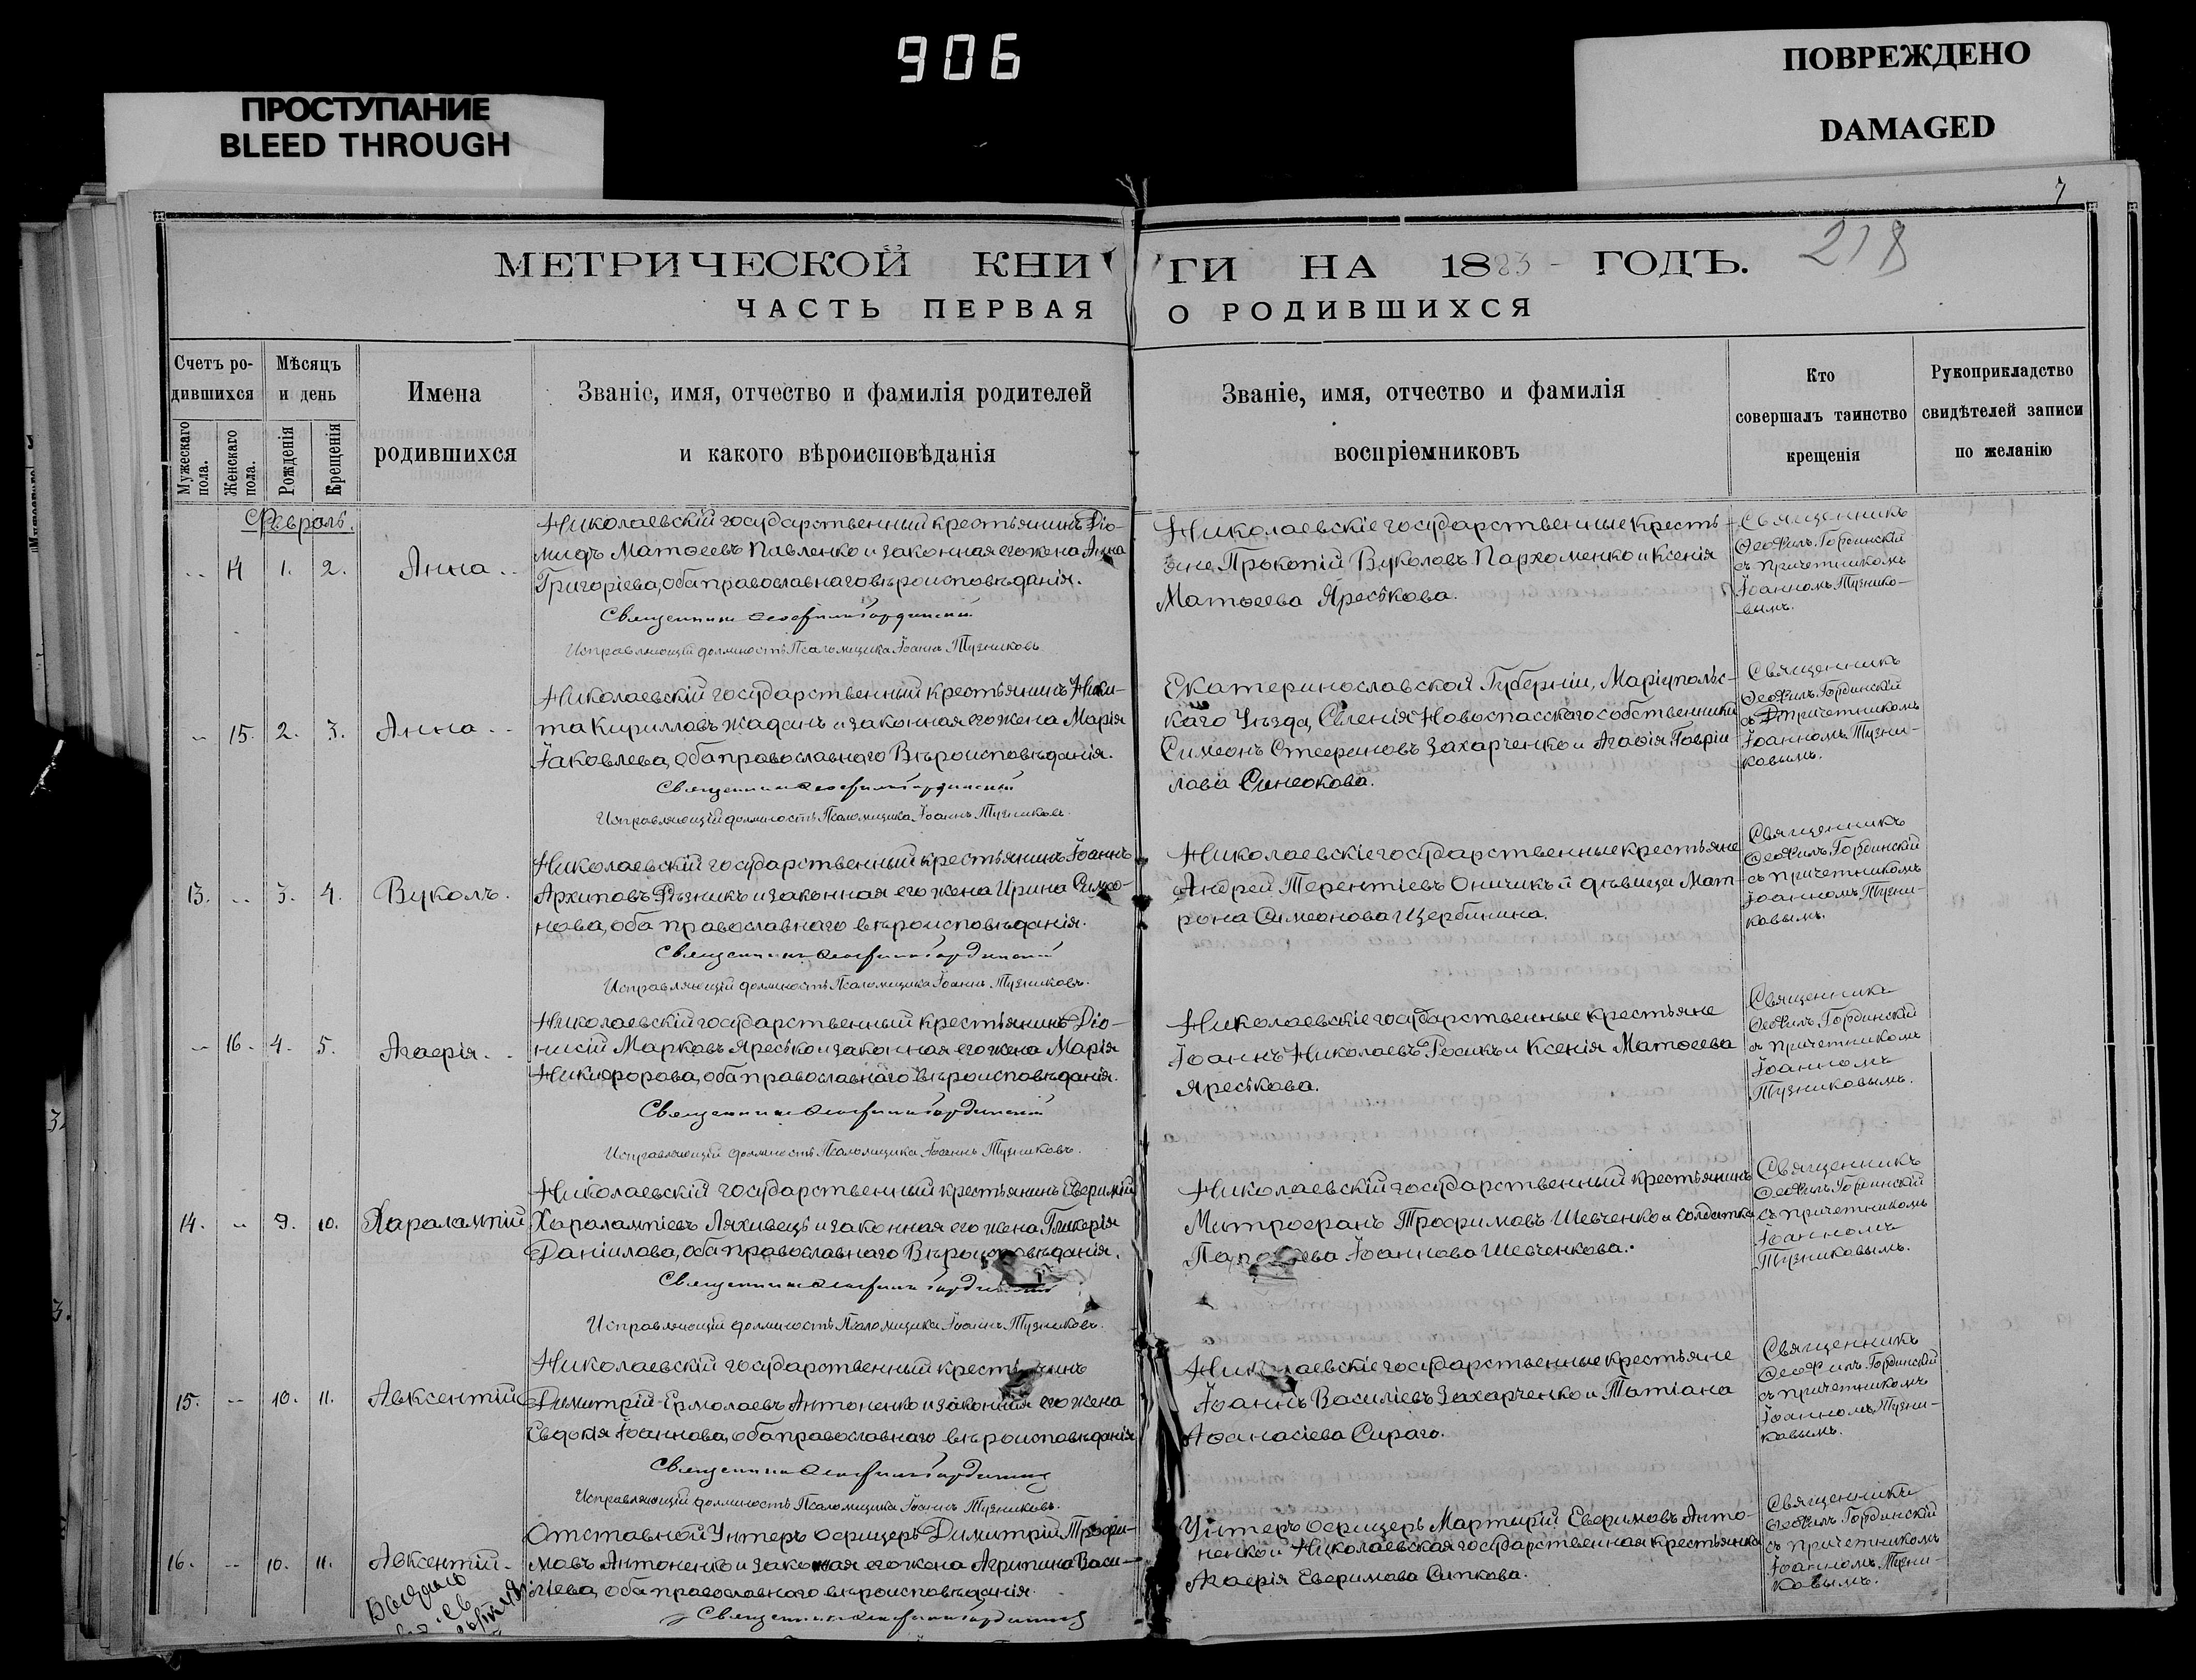 906
ПРОСТУПАНИЕ
BLEED THROUGH
ПОВРЕЖДЕНО
DAMAGED
7
218
МЕТРИЧЕСКОЙ КНИГИ НА 1883 ГОДЪ.
ЧАСТЬ ПЕРВАЯ О РОДИВШИХСЯ
Счетъ ро-
дившихся
Мужескаго пола.
Женскаго пола.
Мѣсяцъ
и день
Рожденія
Крещенія
Имена
родившихся
Званіе, имя, отчество и фамилія родителей
и какого вѣроисповѣданія
Званіе, имя, отчество и фамилія
воспріемниковъ
Кто
совершалъ таинство
крещенія
Рукоприкладство
свидѣтелей записи
по желанію
Февраль.
14 1. 2.
Анна
Николаевскій государственный крестьянинъ Діо-
мидъ Матѳеевъ Павленко и законная его жена Анна
Григоріева, оба православнаго вѣроисповѣданія.
Священникъ Ѳеофилъ Гординскій
Исправляющій должность Псаломщика Іоаннъ Тузниковъ
Николаевскіе государственные кресть-
яне Прокопій Вуколовъ Пархоменко и Ксенія
Матѳеева Яреськова.
Священникъ
Ѳеофилъ Гординскій
съ причетникомъ
Іоанномъ Тузнико-
вымъ.
15. 2. 3.
Анна
Николаевскій государственный крестьянинъ Ники-
та Кирилловъ Жаданъ и законная его жена Марія
Іаковлева, оба православнаго Вѣроисповѣданія.
Священникъ Ѳеофилъ Гординскій
Исправляющій должность Псаломщика Іоаннъ Тузниковъ.
Екатеринославской Губерніи, Маріупольс-
каго Уѣзда, Селенія Новоспасскаго собственники
Симеонъ Стефановъ Захарченко и Агаѳія Гавріи-
лова Синеокова.
Священникъ
Ѳеофилъ Гординскій
съ причетникомъ
Іоанномъ Тузни-
ковымъ.
13. 3. 4.
Вуколъ.
Николаевскій государственный крестьянинъ Іоаннъ
Архиповъ Рѣзникъ и законная его жена Ирина Симео-
нова, оба православнаго вѣроисповѣданія.
Священникъ Ѳеофилъ Гординскій
Исправляющій должность Псаломщика Іоаннъ Тузниковъ.
Николаевскіе государственные крестьяне
Андрей Терентіевъ Оничикъ и дѣвица Мат-
рона Симеонова Щербинина.
Священникъ
Ѳеофилъ Гординскій
съ причетникомъ
Іоанномъ Тузни-
ковымъ.
16. 4. 5.
Агафія.
Николаевскій государственный крестьянинъ Діо-
нисій Марковъ Яресько и законная его жена Марія
Никифорова, оба православнаго Вѣроисповѣданія.
Священникъ Ѳеофилъ Гординскій
Исправляющій должность Псаломщика Іоаннъ Тузниковъ.
Николаевскіе государственные крестьяне
Іоаннъ Николаевъ Росикъ и Ксенія Матѳеева
Яреськова.
Священникъ
Ѳеофилъ Гординскій
съ причетникомъ
Іоанномъ
Тузниковымъ.
14. 9. 10.
Харалампій
Николаевскій государственный крестьянинъ Евфимій
Харалампіевъ Ляхивець и законная его жена Гликерія
Даніилова, оба православнаго Вѣроисповѣданія.
Священникъ Ѳеофилъ Гординскій
Исправляющій должность Псаломщика Іоаннъ Тузниковъ.
Николаевскій государственный крестьянинъ
Митрофанъ Трофимовъ Шевченко и солдатка
Іоаннова Шевченкова.
Священникъ
Ѳеофилъ Гординскій
съ причетникомъ
Іоанномъ
Тузниковымъ.
15. 10. 11.
Авксентій
Николаевскій государственный крестьянинъ
Димитрій Ермолаевъ Антоненко и законная его жена
Евдокія Іоаннова, оба православнаго вѣроисповѣданія
Священникъ Ѳеофилъ Гординскій
Исправляющій должность Псаломщика Іоаннъ Тузниковъ.
Николаевскіе государственные крестьяне
Іоаннъ Василіевъ Захарченко и Татіана
Аѳанасіева Сираго.
Священникъ
Ѳеофилъ Гординскій
съ причетникомъ
Іоанномъ Тузни-
ковымъ.
16. 10. 11.
Авксентій.
Отставной Унтеръ офицеръ Димитрій Трофи-
мовъ Антоненко и законная его жена Агрипина Васи-
ліева, оба православнаго вѣроисповѣданія.
Священникъ Ѳеофилъ Гординскій
Унтеръ офицеръ Мартирій Евфимовъ Анто-
ненко и Николаевская государственная крестьянка
Агафія Евфимова Сипкова.
Священникъ
Ѳеофилъ Гординскій
съ причетникомъ
Іоанномъ Тузни-
ковымъ.